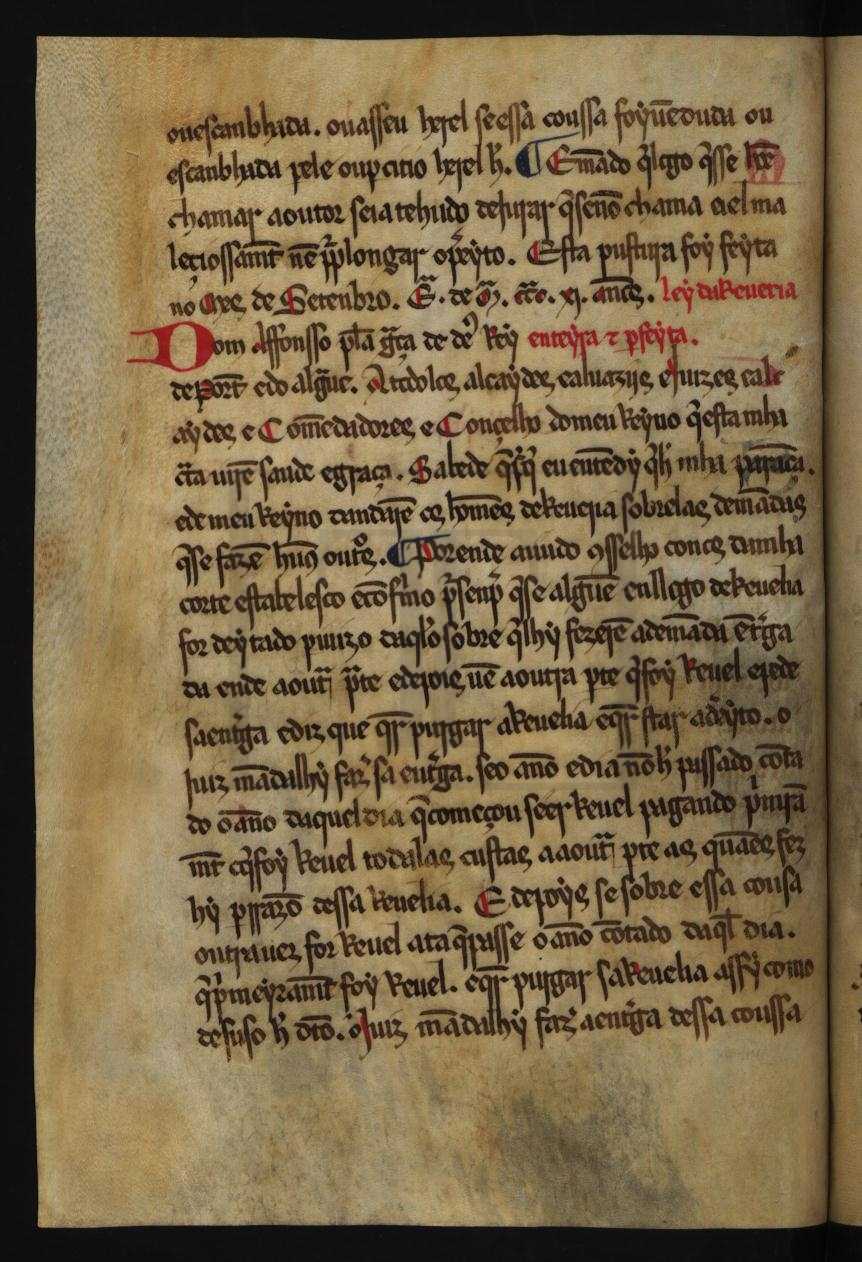 ou escanbhada. ou asseu herel se essa coussa foy uẽduda ou
escanbhada pele ou per outro herel h̃. ¶ E mãdo q̃ logo q̃ sse
chamar a outor seia tehudo de jurar q̃ se nõ chama a el ma
leçiossamẽt nẽ p̃ p̃longar o p̃eyto. Esta pustura foy feyta
no Mes de Setenbro. Ẽ. de M̃. ccc. xi. annos. ley da Reueria
Dom affonsso pla g̃ça de d̃s Rey enteyra ⁊ p̃feyta.
de Port̃ e do algũe. A todolos alcaydes, e aluazijs, e Juizes, e alc
aydes, e Comẽdadores, e Conçelho do meu Reyno q̃ esta mha
c̃ta uirẽ saude e graça. Sabede q̃ eu entẽdy q̃ h̃ mha
e de meu Reyno tandarẽ os homẽs de Reueria sobrelas demãdas
q̃ sse fazẽ hũus outros. ¶ Por ende auudo cõsselho conos da mha
corte estabelesco e cõfirmo p̃ senp̃ q̃ sse algũe en llogo de Reuelia
for deytado p iuizo daq̃lo sobre q̃ lhy fezerẽ a demãda ẽt̃ga
da ende a out̃ p̃te e depois uẽ a outra pte q̃ foy Reuel e pede
sa ent̃ga e diz que q̃r purgar a Reuelia e q̃r star a d̃eyto. o
Juiz mãdalhy faz̃ sa ent̃ga. se o ano e dia nõ h̃ passado cõta
do o ano daquel dia q̃ começou seer Reuel pagando p̃meirã
mt̃ o q̃ foy Reuel todalas custas a a out̃ pte as quaes fez
hy p razõ dessa Reuelia. E depoys se sobre essa cousa
outra uez for Reuel ata q̃ passe o ano cõtado daq̃l dia.
q̃ p̃meyramẽt foy Reuel. e q̃r purgar sa Reuelia assy como
de suso h̃ dito. o Juiz mãdalhy faz̃ a ent̃ga dessa coussa